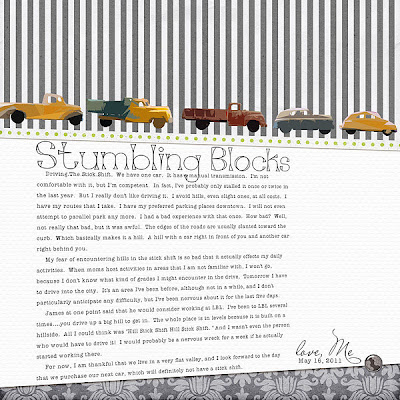 Stumbling Blocks
Driving.The Stick Shift. We have one car. It has a manual transmission. I'm not
comfortable with it, but I'm competent. In fact, I've probably only stalled it once or twice in
the last year. But I really don't like driving it. I avoid hills, even slight ones, at all costs. I
have my routes that I take. I have my preferred parking places downtown. I will not even
attempt to parallel park any more. I had a bad experience with that once. How bad? Well,
not really that bad, but it was awful. The edges of the roads are usually slanted toward the
curb. Which basically makes it a hill. A hill with a car right in front of you and another car
right behind you.
My fear of encountering hills in the stick shift is so bad that it actually effects my daily
activities. When moms host activities in areas that I am not familiar with, I won't go,
because I don't know what kind of grades I might encounter in the drive. Tomorrow I have
to drive into the city. It's an area I've been before, although not in a while, and I don't
particularly anticipate any difficulty, but I've been nervous about it for the last five days.
James at one point said that he would consider working at LBL. I've been to LBL several
times....you drive up a big hill to get in. The whole place is in levels because it is built on a
hillside. All I could think was "Hill Stick Shift Hill Stick Shift." And I wasn't even the person
who would have to drive it! I would probably be a nervous wreck for a week if he actually
started working there.
For now, I am thankful that we live in a very flat valley, and I look forward to the day
that we purchase our next car, which will definitely not have a stick shift.
love, Me
May 16, 2011